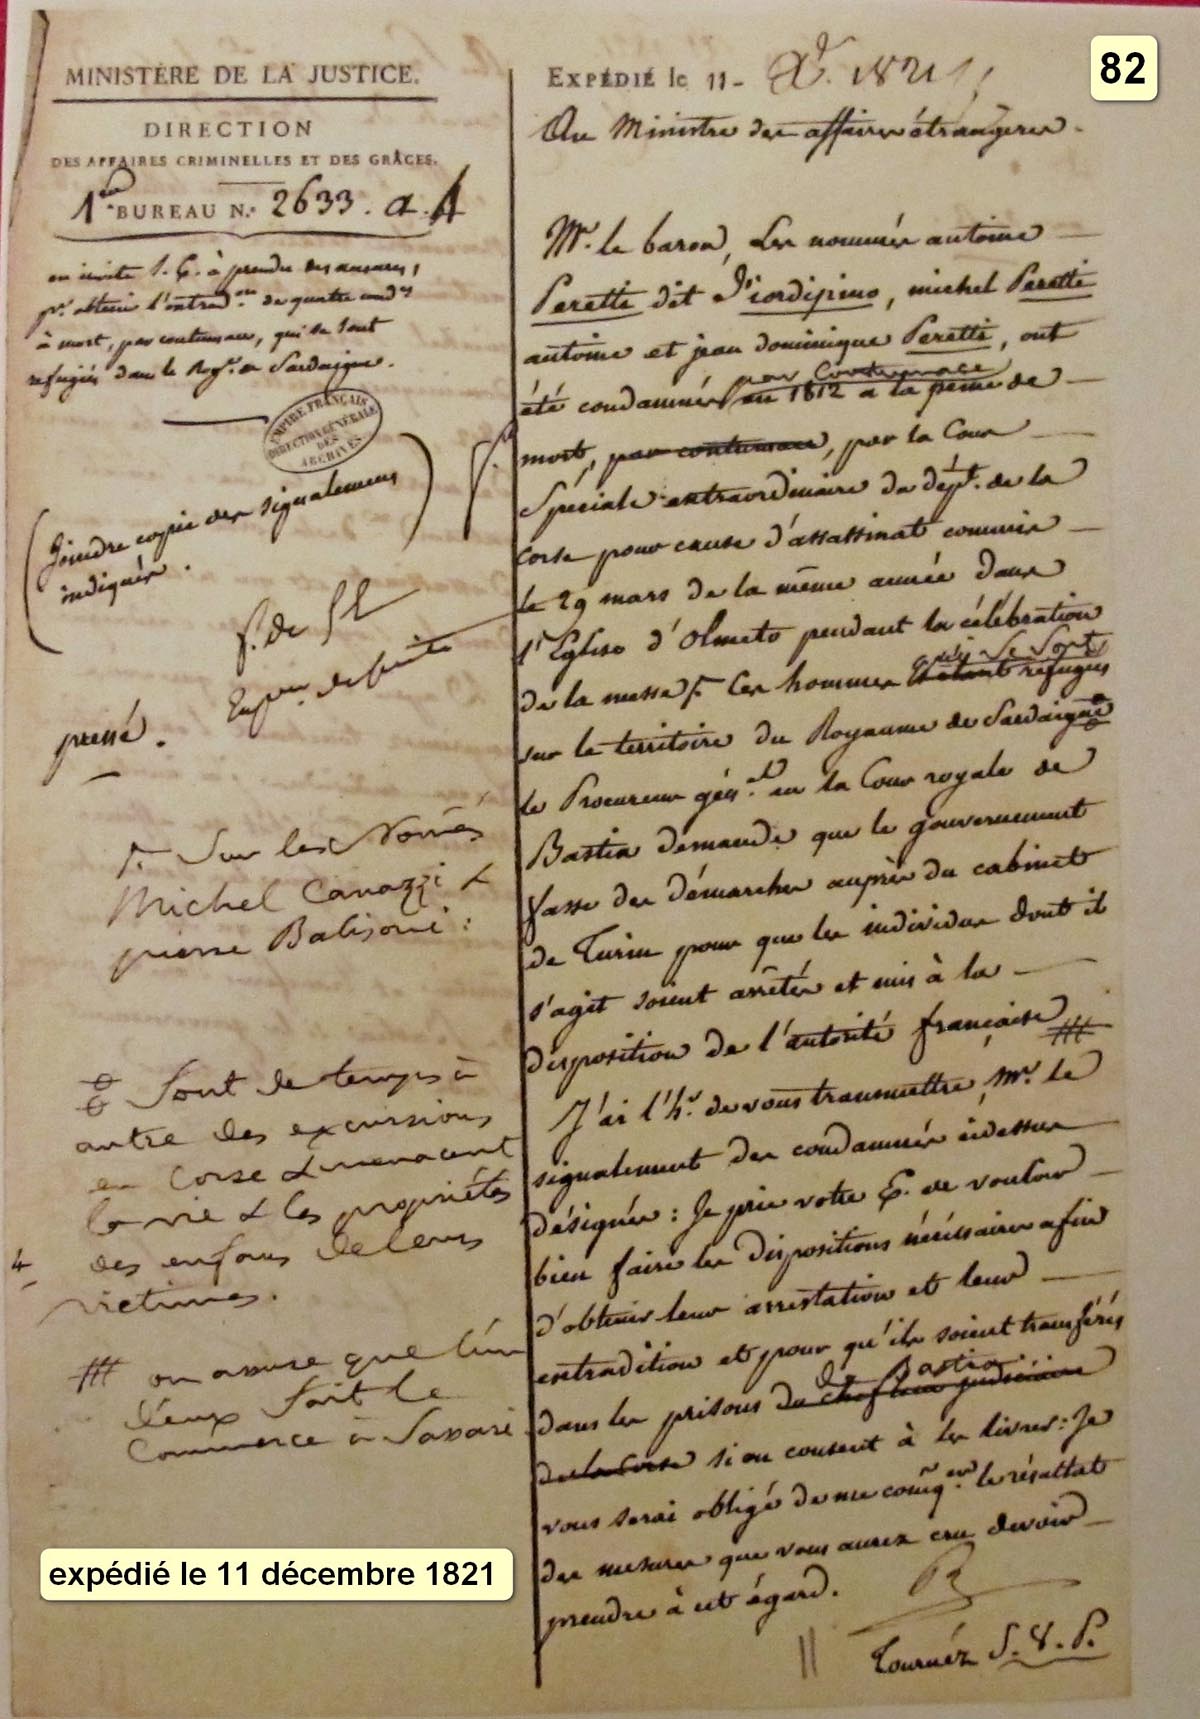 82
MINISTÈRE DE LA JUSTICE.
DIRECTION
DES AFFAIRES CRIMINELLES ET DES GRÂCES.
1er BUREAU N.° 2633. a. 4
on invite S. E. à prendre des mesures,
pr. obtenir l'extradon. de quatre conds
à mort, par contumace, qui se sont
refugiés dans le Roye. de Sardaigne.
EMPIRE FRANÇAIS
DIRECTION GÉNÉRALE
DES
ARCHIVES
(Joindre copie des signalemens
indiqués.)
pressé.
Sur les Nommés
Michel Canazzi &
pierre Balisoni :
sont de temps à
autre des excursions
en Corse & menacent
la vie & les propriétés
des enfans de leurs
victimes.
# on assure que l'un
d'eux fait le
Commerce à Sassari
EXPÉDIÉ le 11 - Xe. 1821
Au Ministre des affaires étrangeres.
Mr. le baron, Les nommés antoine
Peretti dit Giordipino, michel Peretti
antoine et jean dominique Peretti, ont
par Contumace
été condamnés en 1812 a la peine de
mort, par contumace, par la Cour
Spéciale extraordinaire du dépt. de la
Corse pour cause d'assassinat commis
le 29 mars de la même année dans
l'Eglise d'Olmeto pendant la célébration
de la messe. Ces hommes qui se sont refugiés
sur le territoire du Royaume de Sardaigne
le Procureur génal en la Cour royale de
Bastia demande que le gouvernement
fasse des démarches auprès du cabinet
de Turin pour que les individus dont il
s'agit soient arrêtés et mis à la
disposition de l'autorité française #
J'ai l'hr. de vous transmettre, Mr. le
signalement des condamnés cidessus
désignés : Je prie votre E. de vouloir
bien faire les dispositions nécessaires afin
d'obtenir leur arrestation et leur
extradition et pour qu'ils soient transférés
de Bastia
dans les prisons du chef lieu judiciaire
de la Corse si on consent à les livrer : Je
vous serai obligé de me comuqer le résultat
des mesures que vous aurez cru devoir
prendre à cet égard.
Tournéz S. V. P.
expédié le 11 décembre 1821